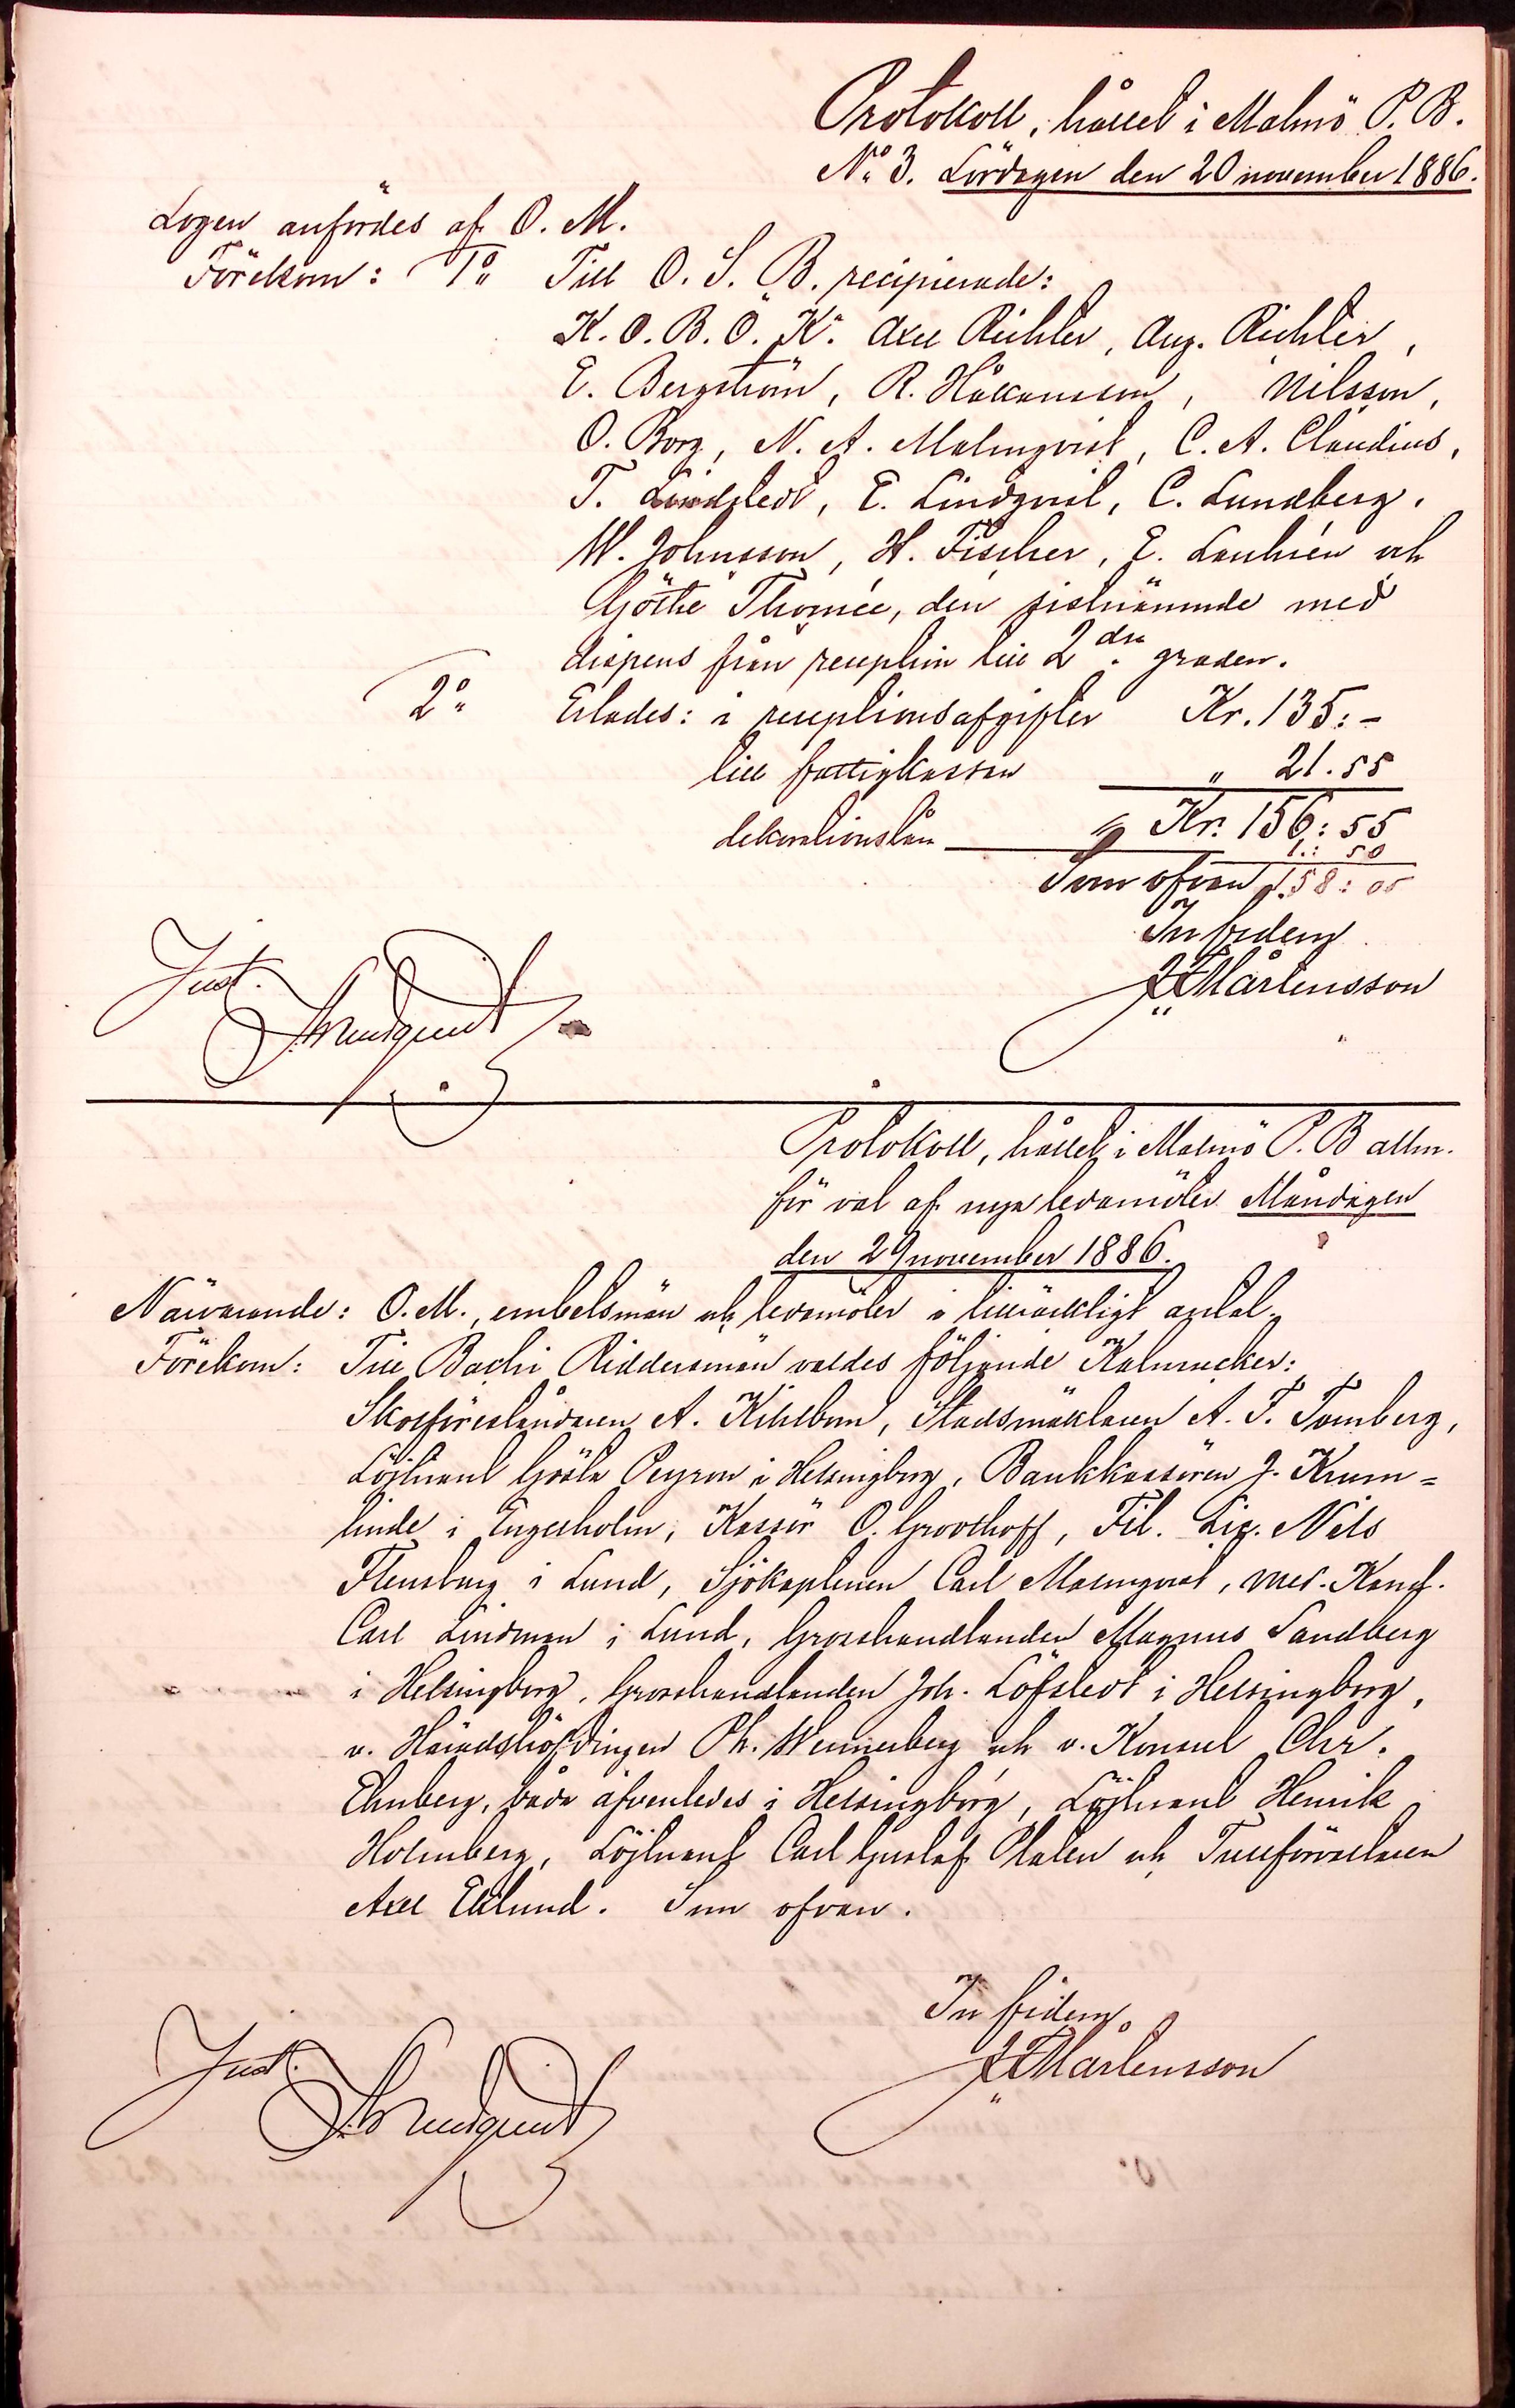 Protokoll, hållet i Malmö P. B.
No 3. Lördagen den 20 november 1886.
Logen anfördes af O. M.
Förekom: 1o Till O. S. B. recipierade:
K. O. B. Ö. K. Axel Richter, Aug. Richter,
E. Bergström, R. Håkansson, Nilsson,
O. Borg, N. A. Malmqvist, C. A. Claudius,
T. Lindstedt, E. Lindqvist, C. Lundberg,
W. Johnsson, H. Fischer, E. och
Göthe Thomée, den sistnämnde med
dispens från reception till 2dra graden.
2o Erlades: i receptionsafgifter Kr. 135:-
till fattigkassan " 21.55
Kr. 156:55
dekorationslån 1: 50
Som ofvan 158: 05
In fidem
Mårtensson
Just.
Protokoll, hållet i Malmö P. B allm.
för val af nya ledamöter Måndagen
den 29 november 1886.
Närvarande: O. M., embetsmän och ledamöter i tillräckligt antal.
Förekom: Till Bachi Riddersmän valdes följande Kalmucker:
Skolföreståndaren A. Kihlbom, Stadsmäklaren A. F. Tornberg,
Löjtnant Gösta Peyron i Helsingborg, Bankkassören J. Krum=
linde i Engelholm, Kassör O. Groothoff, Fil. Lic. Nils
Flensburg i Lund, Sjökaptenen Carl Malmqvist, Med. Kand.
Carl Lindman i Lund, Grosshandlanden Magnus Sandberg
i Helsingborg, Grosshandlanden Joh. Löfstedt i Helsingborg,
v. Häradshöfdingen Ph. Wennerberg och v. Konsul Chr.
Ehnberg, båda äfvenledes i Helsingborg, Löjtnant Henrik
Holmberg, Löjtnant Carl Gustaf Platen och Tullförvaltaren
Axel Eklund. Som ofvan.
In fidem
Mårtensson
Just.